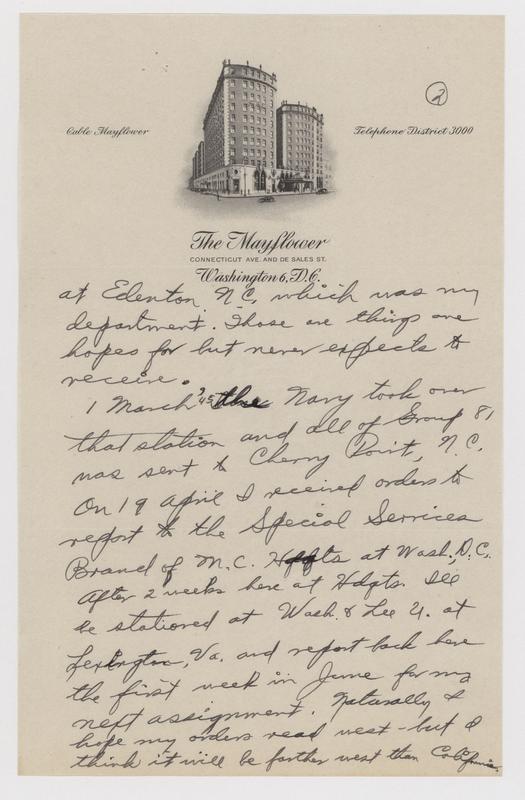 2
Cable Mayflower
Telephone District 3000
The Mayflower
CONNECTICUT AVE. AND DE SALES ST.
Washington 6, D.C.
at Edenton, N.C. which was my
department. Those are things one
hopes for but never expects to
receive.
1 March '45 the Navy took over
that station and all of Group 81
was sent to Cherry Point, N.C.
On 19 April I received orders to
report to the Special Services
Brand of M.C. Hdqts at Wash, D.C.
After 2 weeks here at Hdqts. I'll
be stationed at Wash. & Lee U. at
Lexington, Va. and report back here
the first week in June for my
next assignment. Naturally I
hope my orders read west - but I
think it will be farther west than California.